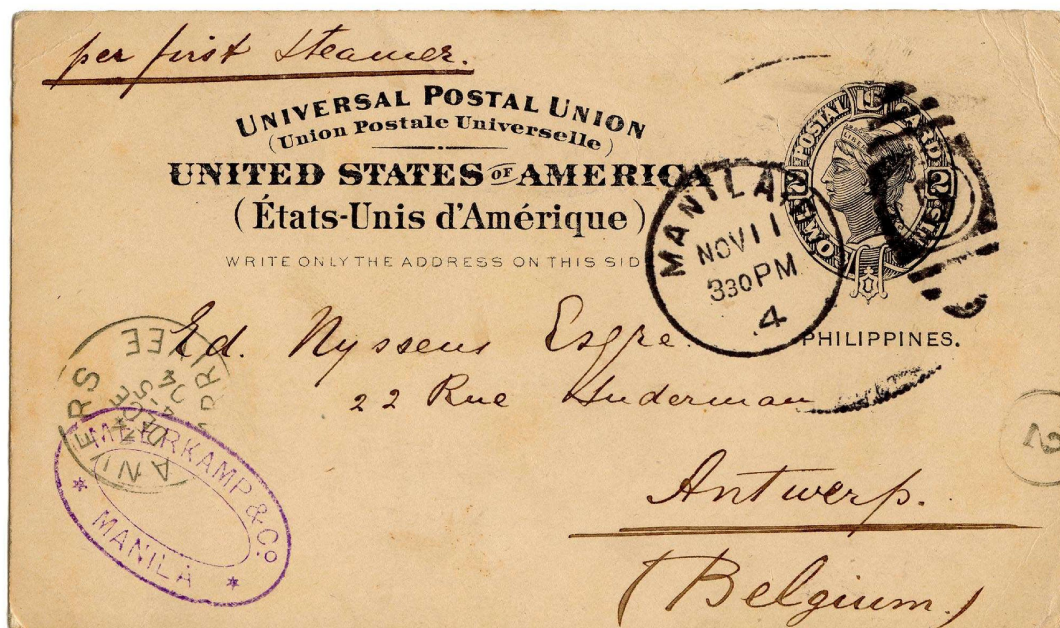 per first steamer.
UNIVERSAL POSTAL UNION
(Union Postale Universelle)
UNITED STATES OF AMERIC
(États-Unis d'Amérique)
WRITE ONLY THE ADDRESS ON THIS SID
POSTAL CARD
2 2
TWO
MANILA
NOV 11
330PM
4
PHILIPPINES.
Ed. Nyssens Esqre.
22 Rue Suderman
Antwerp.
(Belgium.)
ANVERS
MEERKAMP & Co
* MANILA *
2